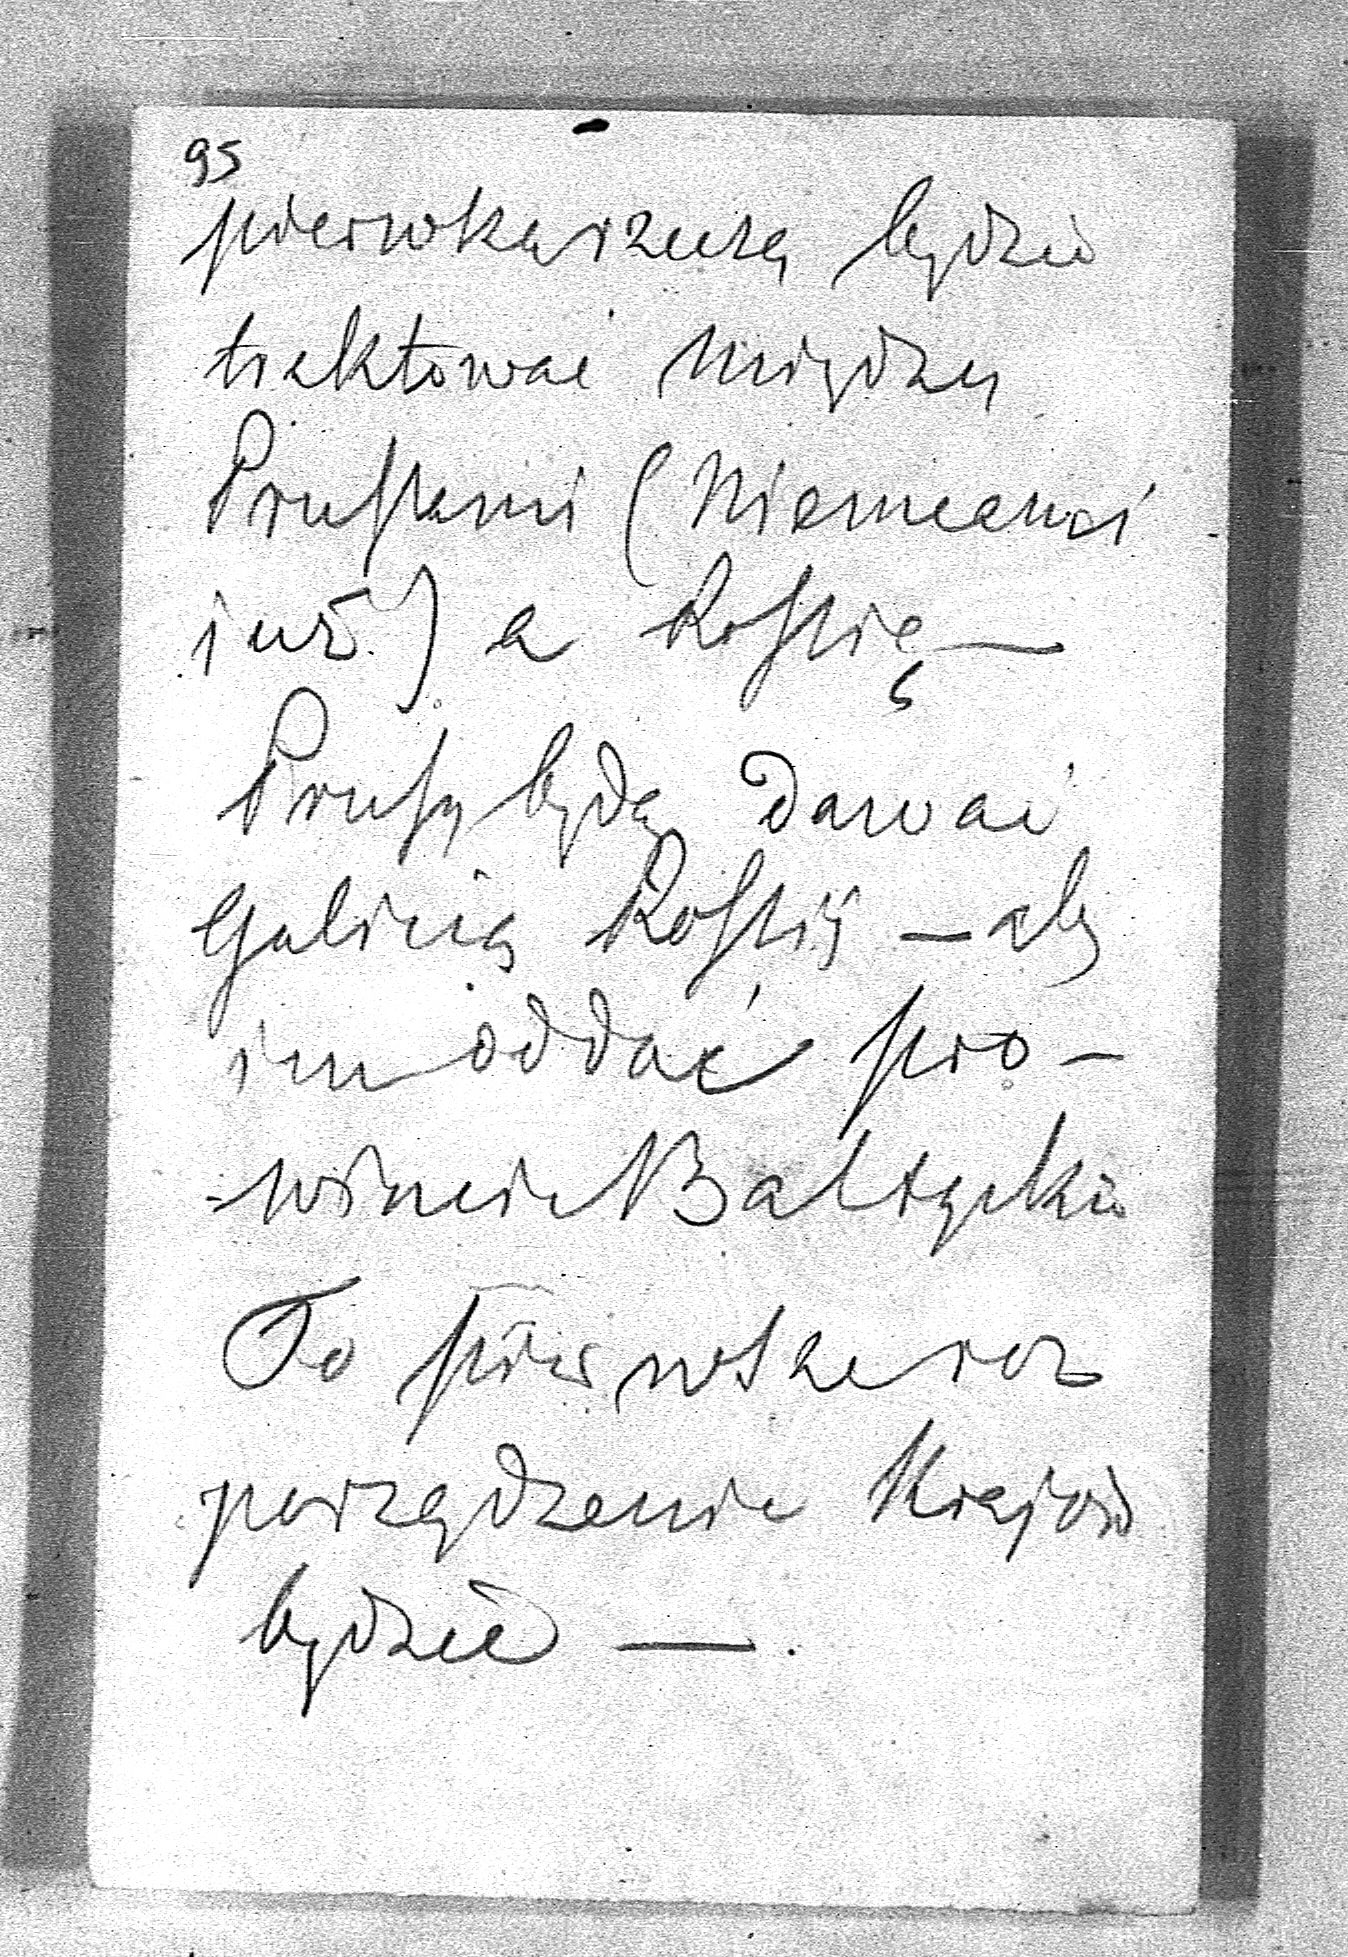 95
pierwkę rzeszą będzie
traktować między
Prussami (Niemcami
już) a Rossią —
Prussy będą dawać
Galicią Rossij — aby
im oddać pro-
-wincie Baltyckie
To pierwsze roz
porządzenie Krajów
będzie — .